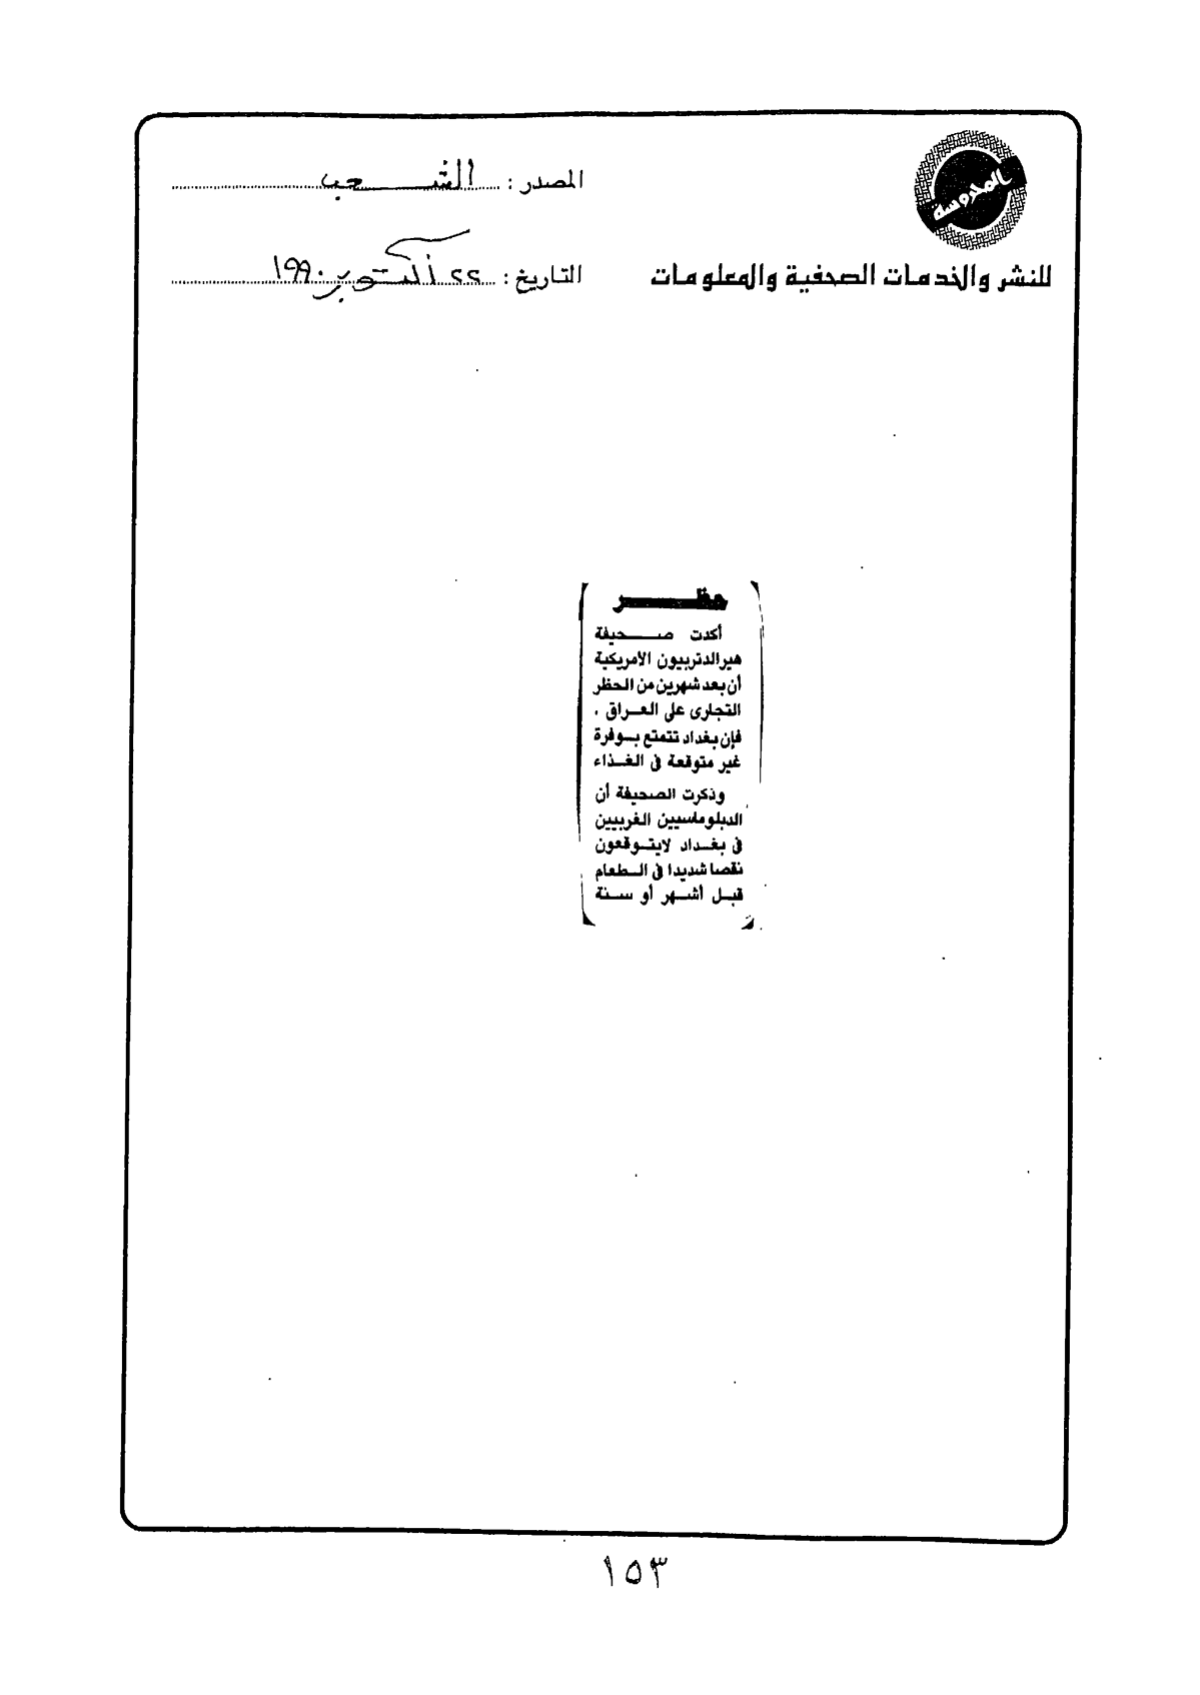 المحروسة
للنشر والخدمات الصحفية والمعلومات
المصدر : الشعب
التاريخ : ٢٢ أكتوبر ١٩٩٠
حظر
أكدت صحيفة
هيرالدتربيون الأمريكية
أن بعد شهرين من الحظر
التجارى على العراق .
فإن بغداد تتمتع بوفرة
غير متوقعة فى الغذاء
وذكرت الصحيفة أن
الدبلوماسيين الغربيين
فى بغداد لايتوقعون
نقصا شديدا فى الطعام
قبل أشهر أو سنة
١٥٣